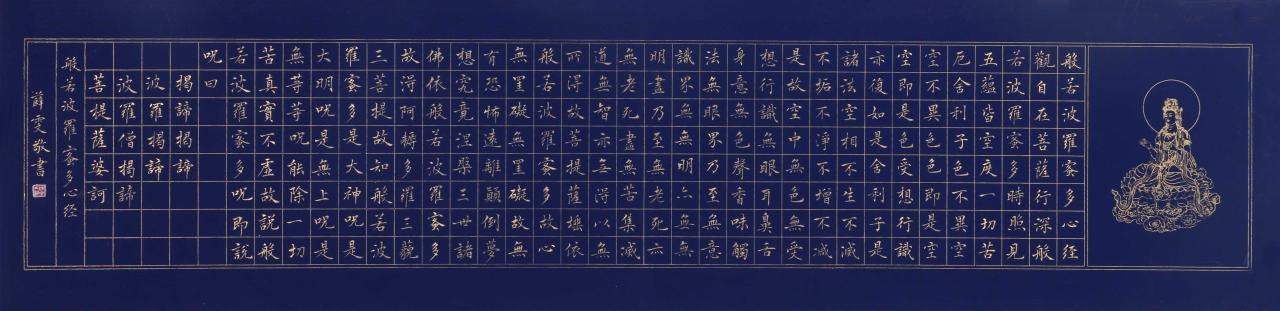 般若波羅蜜多心經
觀自在菩薩行深般
若波羅蜜多時照見
五蘊皆空度一切苦
厄舍利子色不異空
空不異色色即是空
空即是色受想行識
亦復如是舍利子是
諸法空相不生不滅
不垢不淨不增不減
是故空中無色無受
想行識無眼耳鼻舌
身意無色聲香味觸
法無眼界乃至無意
識界無無明亦無無
明盡乃至無老死亦
無老死盡無苦集滅
道無智亦無得以無
所得故菩提薩埵依
般若波羅蜜多故心
無罣礙無罣礙故無
有恐怖遠離顛倒夢
想究竟涅槃三世諸
佛依般若波羅蜜多
故得阿耨多羅三藐
三菩提故知般若波
羅蜜多是大神呪是
大明呪是無上呪是
無等等呪能除一切
苦真實不虛故說般
若波羅蜜多呪即說
呪曰
揭諦揭諦
波羅揭諦
波羅僧揭諦
菩提薩婆訶
般若波羅蜜多心经
薛雯敬書